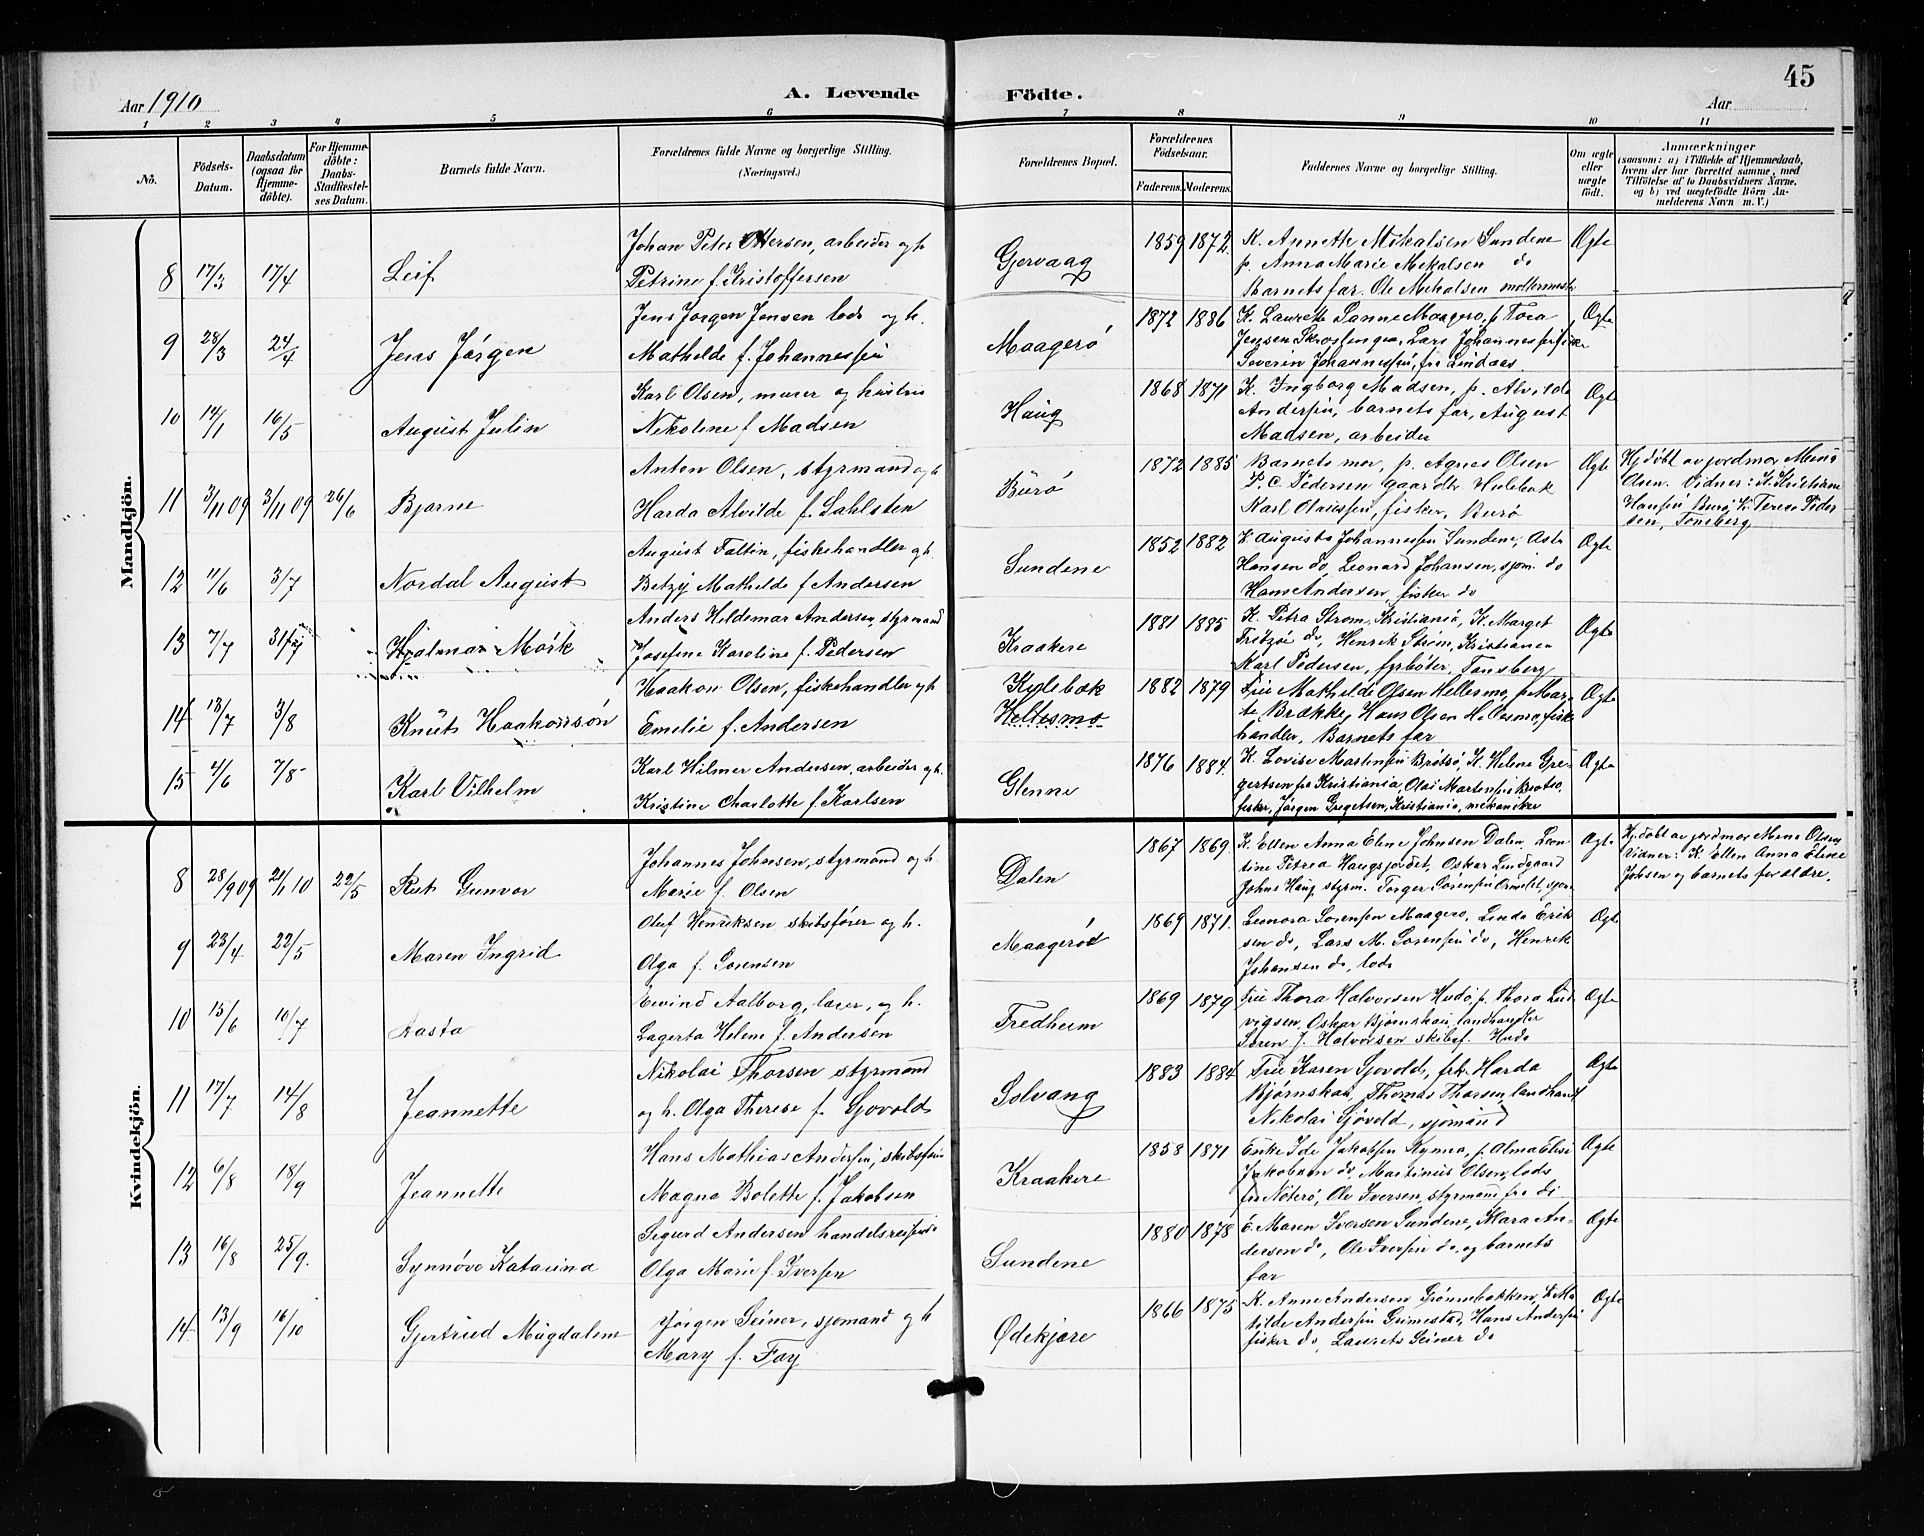 45
Aar 1910
A. Levende Födte.
Aar
1 2 3 4 5 6 7 8 9 10 11
No.
Födsels-Datum.
Daabsdatum (ogsaa for Hjemme-döbte).
For Hjemme-döbte: Daabs-Stadfæstel-ses Datum.
Barnets fulde Navn.
Forældrenes fulde Navne og borgerlige Stilling.
(Næringsvei.)
Forældrenes Bopæl.
Forældrenes Födselsaar.
Faderens. Moderens.
Faddernes Navne og borgerlige Stilling.
Om ægte eller uægte födt.
Anmærkninger
(saasom: a) i Tilfælde af Hjemmedaab, hvem der har forrettet samme, med Tilföielse af to Daabsvidners Navne, og b) ved uægtefödte Börn An-melderens Navn m. V.)
Mandkjön.
8 17/3 17/4 Leif
Johan Peter Ottersen, arbeider og h
Petrine f. Kristoffersen
Gjervaag 1859 1872
K. Annette Mikalsen Sundene
p. Anna Marie Mikalsen do
Barnets far. Ole Mikalsen
Ægte
9 28/3 24/4 Jens Jörgen
Jens Jorgen Jensen lods og h.
Mathilde f. Johannessen
Maagerö 1872 1886
K. Laurette Sanne Maagero, p. Tora
Jensen Lars Johannessen fisker
Severin Johannessen, fra Lindaas
Ægte
10 14/1 16/5 August Julin
Karl Olsen, murer og hustru
Nikoline f Madsen
Haug 1868 1871
K. Ingborg Madsen, p. Alvilde
Andersen, barnets far, August
Madsen, arbeider
Ægte
11 3/11 09 3/11 09 26/6 Bjarne
Anton Olsen, styrmand og h
Harda Alvilde f. Sahlsten
Burö 1872 1885
Barnets mor, p. Agnes Olsen
P. C. Pedersen gaardbr Hulebak
Karl Olaussen, fisker, Burö
Ægte
Hj.döbt av jordmor Mena
Olsen. Vidner: K. Kristiane
Hansen Burö, K. Terese Peder
sen, Tonsberg
12 11/6 3/7 Nordal August
August Faltin, fiskehandler og h.
Betzy Mathilde f Andersen
Sundene 1852 1882
K. Augusta Johannessen Sundene, Asta
Hansen do, Leonard Johansen, sjom. do
Hans Andersen, fisker do
Ægte
13 7/7 31/7 Hjalmar Mörk
Anders Hildemar Andersen, styrmand
Josefine Karoline f. Pedersen
Kraakere 1881 1885
K. Petra Strom, Kristiania, K. Marget
do, Henrik Ström, Kristiania
Karl Pedersen, fyrböter, Tonsberg
Ægte
14 13/7 3/8 Knut Haakonsön
Haakon Olsen, fiskehandler og h
Emilie f. Andersen
Kylebæk
Hellesmo
1882 1879
Frue Mathilde Olsen Hellesmo, p. Mar-
te Brække, Hans Olsen Hellesmo, fiske
handler, Barnets far
Ægte
15 2/6 7/8 Karl Vilhelm
Karl Hilmer Andersen, arbeider og h.
Kristine Charlotte f. Karlsen
Glenne 1876 1884
K. Lovise Martinsen Brötsö, K. Helene Gre-
gertsen fra Kristiania, Olai Martinsen Brotso,
fisker, Jörgen Gregetsen, Kristiania, mekaniker
Ægte
Kvindekjön.
8 28/9 09 21/1 10 22/5 Rut Gunvor
Johannes Johnsen, styrmand og h.
Marie f. Olsen
Dalen 1867 1869
K. Ellen Anna Eline Johnsen Dalen,
Petrea Haugsjordet, Oskar Lindgaard
Johns Haug styrm. Torger Sörensen
Ægte
Hj.döbt av jordmor Mena Olsen,
Vidner: K. Ellen Anna Eline
Johsen og barnets forældre.
9 23/4 22/5 Maren Ingrid
Oluf Henriksen skibsförer og h.
Olga f. Sorensen
Maageröd 1869 1871.
Leonora Sorensen Maagero, Linda Erik
sen do, Lars M. Sorensen do, Henrik
Johansen do, lods
Ægte
10 15/6 10/7 Aasta
Eivind Aalborg, lærer, og h.
Lagerta Helene f. Andersen
Fredheim 1869 1879
Frue Thora Halvorsen Hudö, p. Thora Lud
vigsen, Oskar Bjørnskau, landhandler
Soren J. Halvorsen skibsf. Hudo
Ægte
11 17/7 14/8 Jeannette
Nikolai Thorsen styrmand
og h. Olga Therese f. Sjovold
Solvang 1883 1884
Frue Karen Sjovold, frk. Harda
Bjørnskau, Thomas Thorsen, landhand
Nikolai Sjövold, sjomand
Ægte
12 6/8 18/9 Jeannette
Hans Mathias Andersen, skibsförer
Magna Bolette f. Jakobsen
Kraakere 1858 1871
Enke Ida Jakobsen p. Alma Elise
Jakobsen do, Martinius Olsen, lods
fra Nöterö, Ole Iversen, styrmand fra do
Ægte
13 16/8 25/9. Synnöve Katarina
Sigurd Andersen handelsreisende
Olga Marie f. Iversen
Sundene 1880 1878
E. Maren Iversen Sundene, Klara An-
dersen do, Ole Iversen do. og barnets
far
Ægte
14 13/9 16/10 Gjertrud Magdalene
Jörgen Seiner, sjomand og h
Mary f. Fay
Ødekjære 1866 1875
K. Anne Andersen Grönnebakken, K. Ma
tilde Andersen Grimestad, Hans Andersen
fisker do, Laurets Seiner do
Ægte